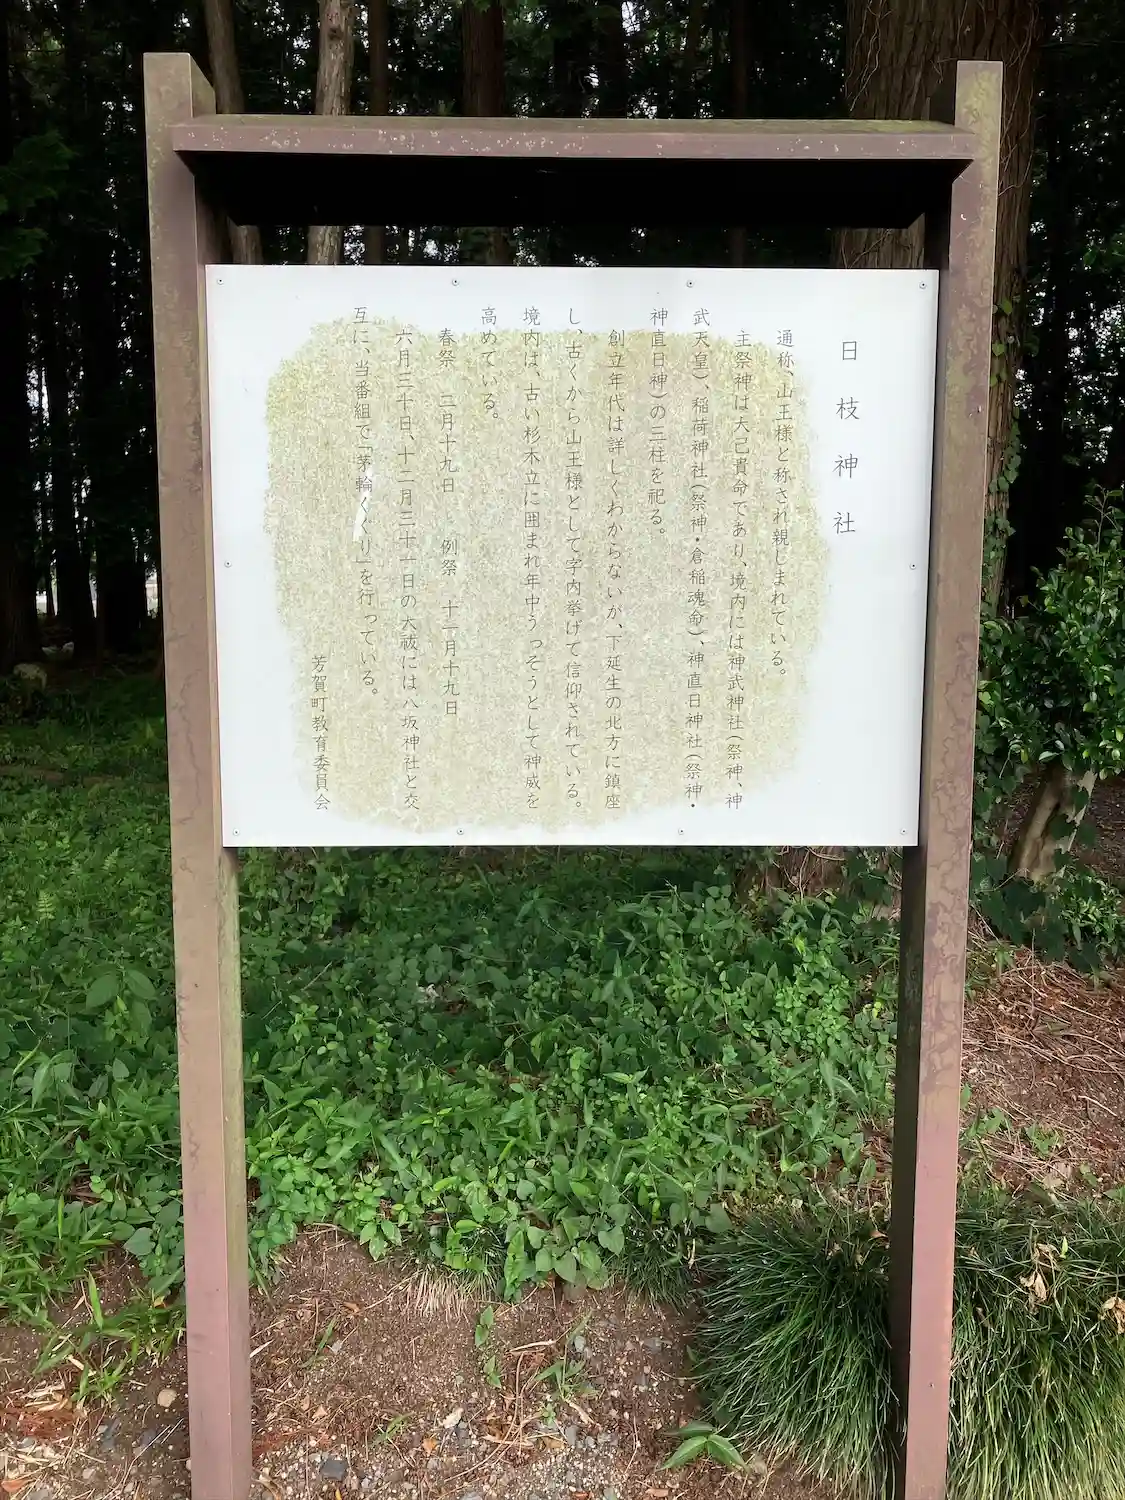 日枝神社
通称、山王様と称され親しまれている。
主祭神は大己貴命であり、境内には神武神社（祭神、神
武天皇）、稲荷神社（祭神・倉稲魂命）、神直日神社（祭神・
神直日神）の三柱を祀る。
創立年代は詳しくわからないが、下延生の北方に鎮座
し、古くから山王様として字内挙げて信仰されている。
境内は、古い杉木立に囲まれ年中うっそうとして神威を
高めている。
春祭　二月十九日　例祭　十一月十九日
六月三十日、十二月三十一日の大祓には八坂神社と交
互に、当番組で「茅輪くぐり」を行っている。
芳賀町教育委員会